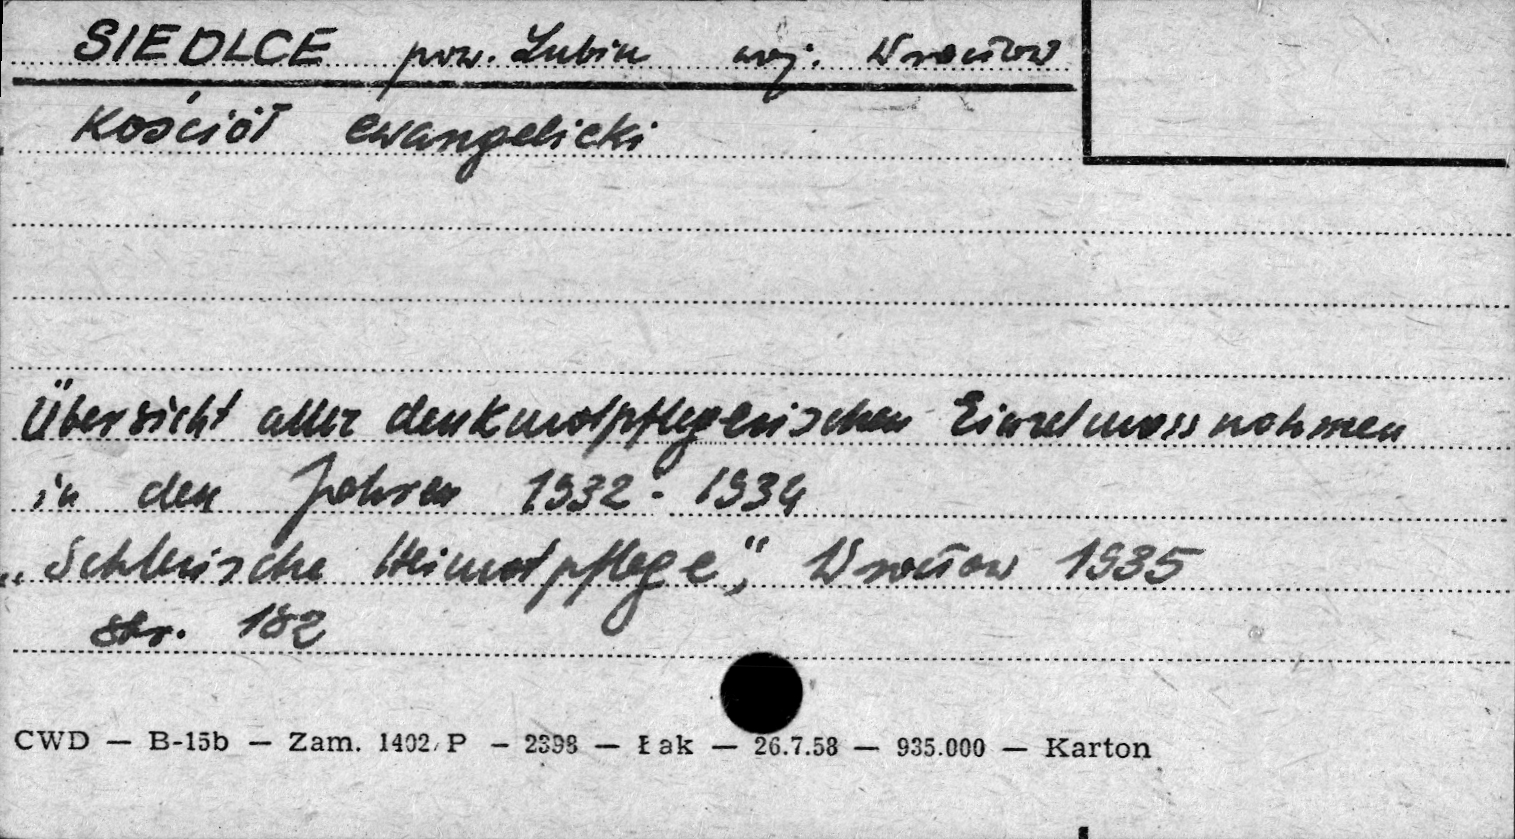 SIEDLCE pow. Lubin woj. Wrocław
Kościół ewangelicki
Übersicht aller denkmalpflegerischen Einzelmassnahmen
in den Jahren 1932 - 1934
„Schlesische Heimatpflege", Wrocław 1935
str. 182
CWD — B-15b — Zam. 1402/P — 2398 — Łak — 26.7.58 — 935.000 — Karton